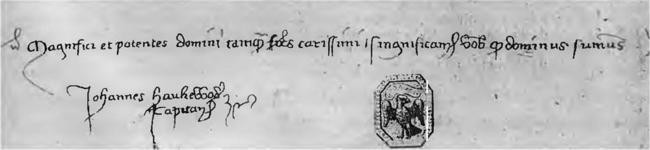 Magnifici et potentes domini tamq̃ fr̃es carissimi singnificam9 vob̃ ꝙ dominus sum̃us
Johannes haukewod
Capitan9